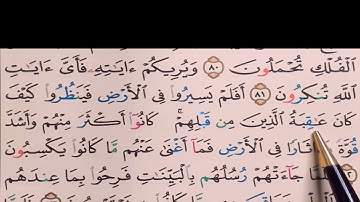 ٱلْفُلْكِ تُحْمَلُونَ ٨٠ وَيُرِيكُمْ ءَايَٰتِهِۦ فَأَىَّ ءَايَٰتِ
ٱللَّهِ تُنكِرُونَ ٨١ أَفَلَمْ يَسِيرُوا۟ فِى ٱلْأَرْضِ فَيَنظُرُوا۟ كَيْفَ
كَانَ عَٰقِبَةُ ٱلَّذِينَ مِن قَبْلِهِمْ ۚ كَانُوٓا۟ أَكْثَرَ مِنْهُمْ وَأَشَدَّ
قُوَّةً وَءَاثَارًا فِى ٱلْأَرْضِ فَمَآ أَغْنَىٰ عَنْهُم مَّا كَانُوا۟ يَكْسِبُونَ
فَلَمَّا جَآءَتْهُمْ رُسُلُهُم بِٱلْبَيِّنَٰتِ فَرِحُوا۟ بِمَا عِندَهُم